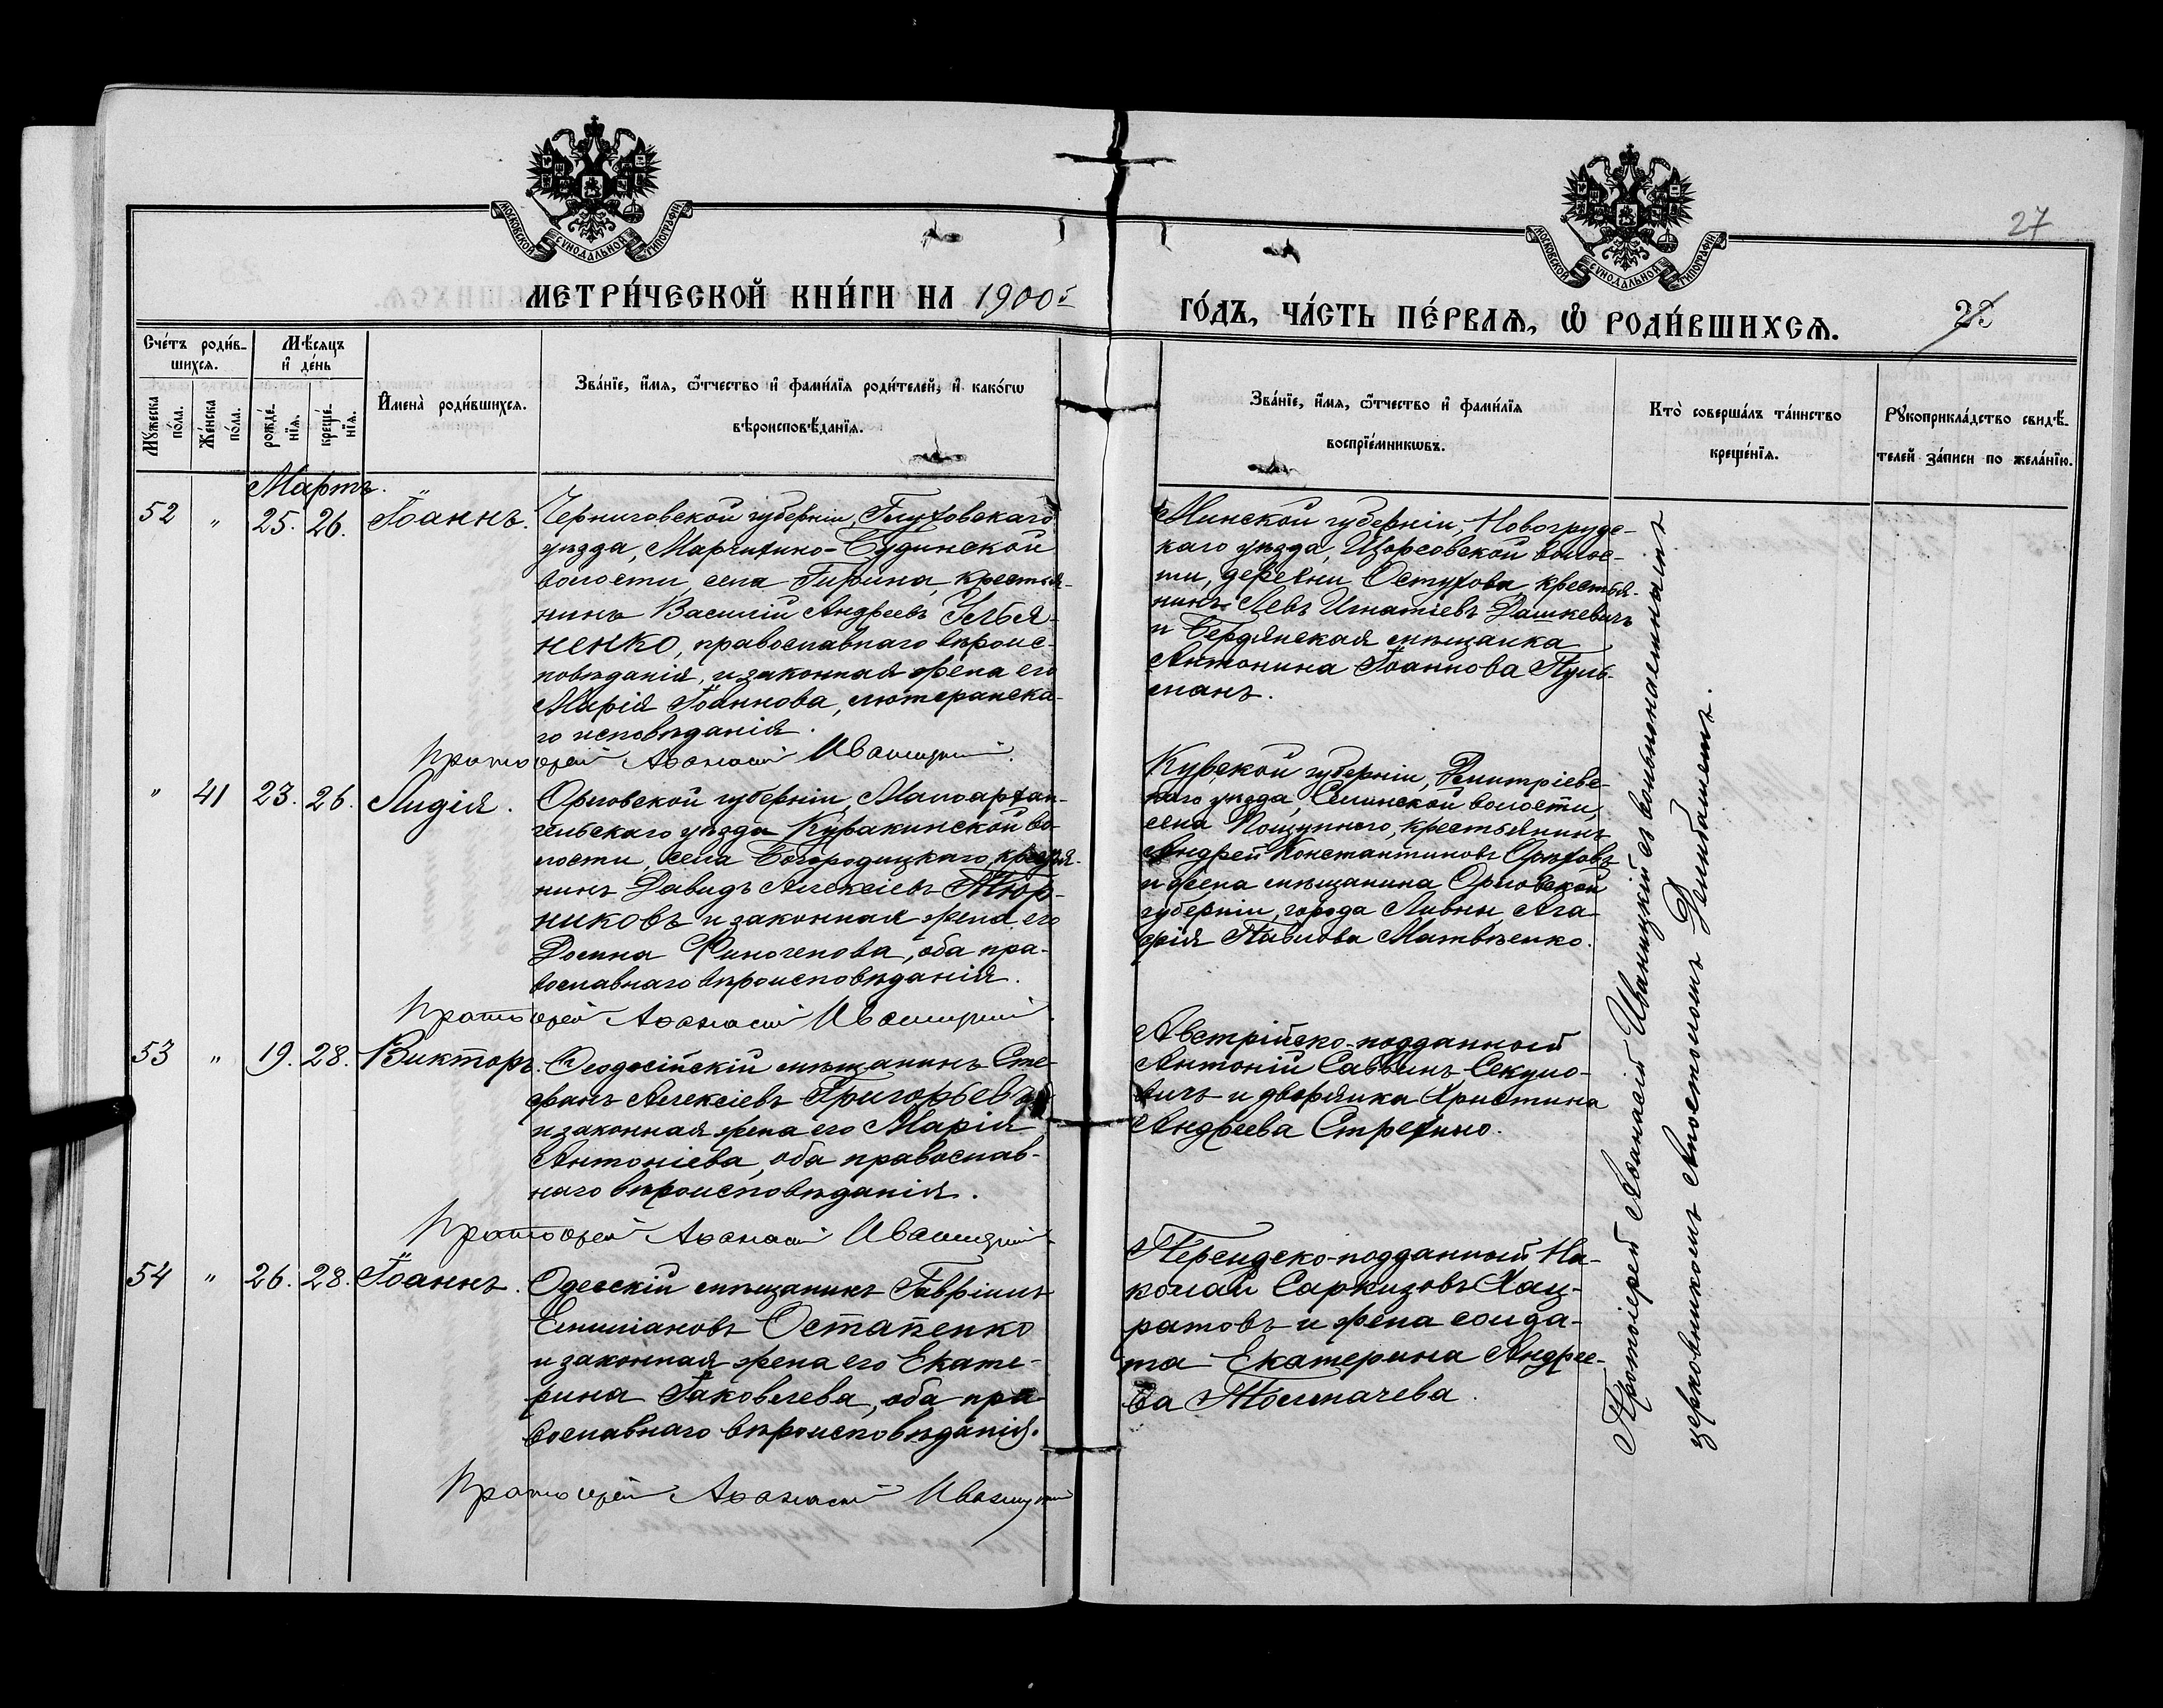 МОСКОВСКОЙ СѴНОДАЛЬНОЙ ТИПОГРАФІИ
МОСКОВСКОЙ СѴНОДАЛЬНОЙ ТИПОГРАФІИ
27
МЕТРИ́ЧЕСКОЙ КНИ́ГИ НА 1900й
ГО́ДЪ, ЧА́СТЬ ПЕ́РВАѦ, Ѽ РОДИ́ВШИХСѦ.
Сче́тъ роди́в-
шихся.
Мꙋ́жеска по́ла.
Же́нска по́ла.
Мѣ́сяцъ
и҆ де́нь
рожде́-
нїя.
креще́-
нїя.
И҆мена̀ роди́вшихся.
Зва́нїе, и҆́мя, ѻ҆́тчество и҆ фами́лїя роди́телей, и҆ како́гѡ
вѣроисповѣ́данїя.
Зва́нїе, и҆́мя, ѻ҆́тчество и҆ фами́лїя
воспрїе́мникѡвъ.
Кто̀ соверша́лъ та́инство
креще́нїя.
Рꙋкоприкла́дство свидѣ́-
телей за́писи по жела́нїю.
Мартъ.
52 " 25. 26. Іоаннъ.
Черниговской губерніи, Глуховскаго
уѣзда, Марчихино-Будинской
волости, села Гирина, крестья-
нинъ Василій Андреевъ Улья-
ненко, православнаго вѣроис-
повѣданія, и законная жена его
Марія Іоаннова, лютеранска-
го исповѣданія.
Протоіерей Аѳанасій Иваницкій.
Минской губерніи, Новогруд-
каго уѣзда, Щорсовской волос-
ти, деревни Остухова, крестья-
нинъ Левъ Игнатіевъ Дашкевичъ
и Бердянская мѣщанка
Антонина Іоаннова Пуль-
манъ.
" 41 23. 26. Лидія.
Орловской губерніи, Малоархан-
гельскаго уѣзда Куракинской во-
лости, села Богородицкаго, крестья-
нинъ Давидъ Алексіевъ Тюр-
никовъ и законная жена его
Домна Финогенова, оба пра-
вославнаго вѣроисповѣданія.
Протоіерей Аѳанасій Иваницкій.
Курской губерніи, Димитріевс-
каго уѣзда, Селинской волости,
села Пощупнаго, крестьянинъ
Андрей Константиновъ Орѣховъ
и жена мѣщанина Орловской
губерніи, города Ливны, Ага-
фія Павлова Матвѣенко.
53 " 19. 28. Викторъ.
Ѳеодосійскій мѣщанинъ Сте-
фанъ Алексіевъ Григорьевъ
и законная жена его Марія
Антоніева, оба православ-
наго вѣроисповѣданія.
Протоіерей Аѳанасій Иваницкій
Австрійско-подданный
Антоній Саввинъ Секуло-
вичъ и дворянка Христина
Андреева Стрехино.
54 " 26. 28. Іоаннъ.
Одесскій мѣщанинъ Гавріилъ
Емиліановъ Остапенко
и законная жена его Екате-
рина Іаковлева, оба пра-
вославнаго вѣроисповѣданія.
Протоіерей Аѳанасій Иваницкій
Персидско-подданный Ни-
колай Саркизовъ Хац-
ратовъ и жена солда-
та Екатерина Андрее-
ва Толмачева.
Протоіерей Аѳанасій Иваницкій съ вольнонаемнымъ
церковникомъ Апостоломъ Делибашемъ.